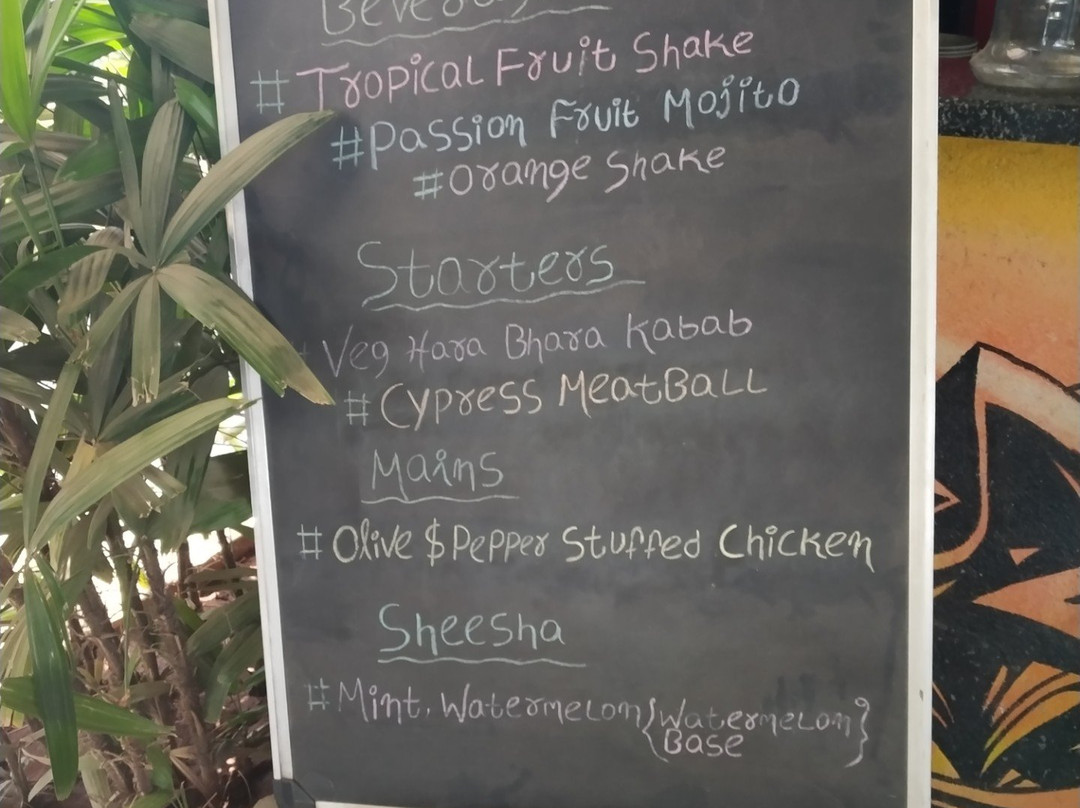 # Tropical Fruit Shake
#Passion Fruit Mojito
#Orange Shake
Starters
Veg Hara Bhara Kabab
#Cypress MeatBall
Mains
#Olive $ Pepper Stuffed Chicken
Sheesha
#Mint, Watermelon {Watermelon
Base}